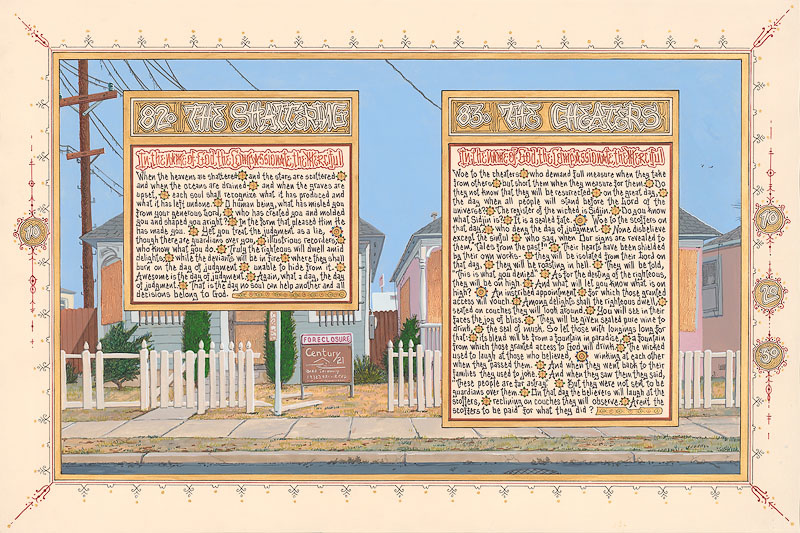 82. THE SHATTERING
In the name of God, the Compassionate, the Merciful
When the heavens are shattered and the stars are scattered
and when the oceans are drained and when the graves are
upset, each soul shall recognize what it has produced and
what it has left undone. O human being, what has misled you
from your generous Lord, who has created you and molded
you and shaped you aright? In the form that pleased Him He
has made you. Yet you treat the judgment as a lie,
though there are guardians over you, illustrious recorders
who know what you do. Truly the righteous will dwell amid
delights, while the deviants will be in fire where they shall
burn on the day of judgment unable to hide from it.
Awesome is the day of judgment. Again, what a day, the day
of judgment. That is the day no soul can help another and all
decisions belong to God.
FORECLOSURE
Century
21
83. THE CHEATERS
In the name of God, the Compassionate, the Merciful
Woe to the cheaters who demand full measure when they take
from others but short them when they measure for them. Do
they not know that they will be resurrected on the great day,
the day when all people will stand before the Lord of the
universe? The register of the wicked is Sidjin. Do you know
what Sidjin is? It is a sealed fate. Woe to the scoffers on
that day, who deny the day of judgment. None disbelieve
except the sinful who say, when Our signs are revealed to
them, "Tales from the past!" Their hearts have been shielded
by their own works- they will be isolated from their Lord on
that day. they will be roasting in hell. They will be told,
"This is what you denied." As for the destiny of the righteous,
they will be on high. And what will let you know what is on
high? An inscribed appointment for which those granted
access will vouch. Among delights shall the righteous dwell,
seated on couches they will look around. You will see in their
faces the joy of bliss. They will be given sealed pure wine to
drink, the seal of musk. So let those with longings long for
that: its blend will be from a fountain in paradise, a fountain
from which those granted access to God will drink. The wicked
used to laugh at those who believed, winking at each other
when they passed them. And when they went back to their
families they used to joke. And when they saw them they said,
"These people are far astray." But they were not sent to be
guardians over them. On that day the believers will laugh at the
scoffers, reclining on couches they will observe. Aren't the
scoffers to be paid for what they did?
10
10
20
30